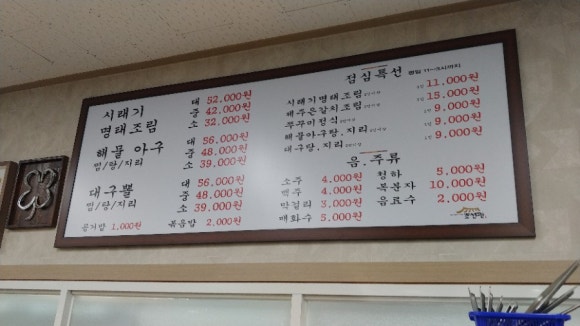 시래기 대 52,000원
명태조림 중 42,000원
소 32,000원
해물 아구 대 56,000원
찜/탕/지리 중 48,000원
소 39,000원
대구뽈 대 56,000원
찜/탕/지리 중 48,000원
소 39,000원
공기밥 1,000원 볶음밥 2,000원
점심특선 평일 11~3시까지
시래기명태조림 11,000원
제주은갈치조림 15,000원
쭈꾸미정식 9,000원
해물아구탕,지리 9,000원
대구탕,지리 9,000원
음,주류
소주 4,000원 청하 5,000원
맥주 4,000원 복분자 10,000원
막걸리 3,000원 음료수 2,000원
매화수 5,000원